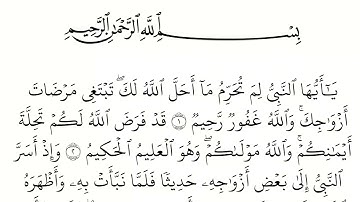 بِسْمِ ٱللَّهِ ٱلرَّحْمَٰنِ ٱلرَّحِيمِ
يَٰٓأَيُّهَا ٱلنَّبِيُّ لِمَ تُحَرِّمُ مَآ أَحَلَّ ٱللَّهُ لَكَۖ تَبْتَغِي مَرْضَاتَ
أَزْوَٰجِكَۚ وَٱللَّهُ غَفُورٌ رَّحِيمٌ ١ قَدْ فَرَضَ ٱللَّهُ لَكُمْ تَحِلَّةَ
أَيْمَٰنِكُمْۚ وَٱللَّهُ مَوْلَىٰكُمْۖ وَهُوَ ٱلْعَلِيمُ ٱلْحَكِيمُ ٢ وَإِذْ أَسَرَّ
ٱلنَّبِيُّ إِلَىٰ بَعْضِ أَزْوَٰجِهِۦ حَدِيثًا فَلَمَّا نَبَّأَتْ بِهِۦ وَأَظْهَرَهُ